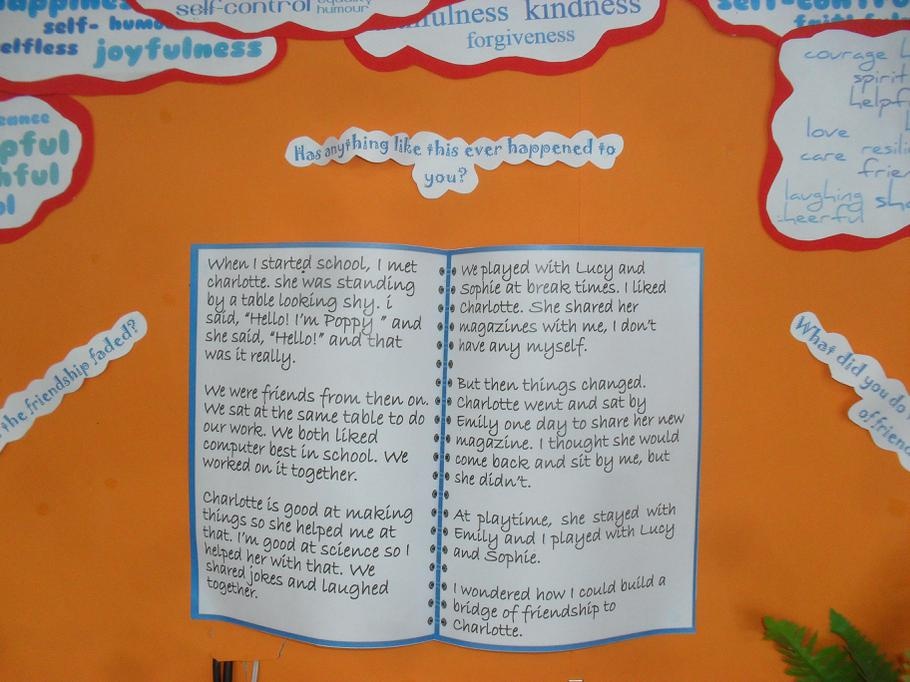 self-control equality
humour
kindness
forgiveness
self-
joyfulness
courage
spirit
love
care
laughing
Has anything like this ever happened to
you?
the friendship faded?
What did you do
When I started school, I met
charlotte. she was standing
by a table looking shy. i
said, “Hello! I'm Poppy ” and
she said, “Hello!” and that
was it really.
We were friends from then on.
We sat at the same table to do
our work. We both liked
computer best in school. We
worked on it together.
Charlotte is good at making
things so she helped me at
that. I'm good at science so I
helped her with that. We
shared jokes and laughed
together.
We played with Lucy and
Sophie at break times. I liked
Charlotte. She shared her
magazines with me, I don't
have any myself.
But then things changed.
Charlotte went and sat by
Emily one day to share her new
magazine. I thought she would
come back and sit by me, but
she didn't.
At playtime, she stayed with
Emily and I played with Lucy
and Sophie.
I wondered how I could build a
bridge of friendship to
Charlotte.